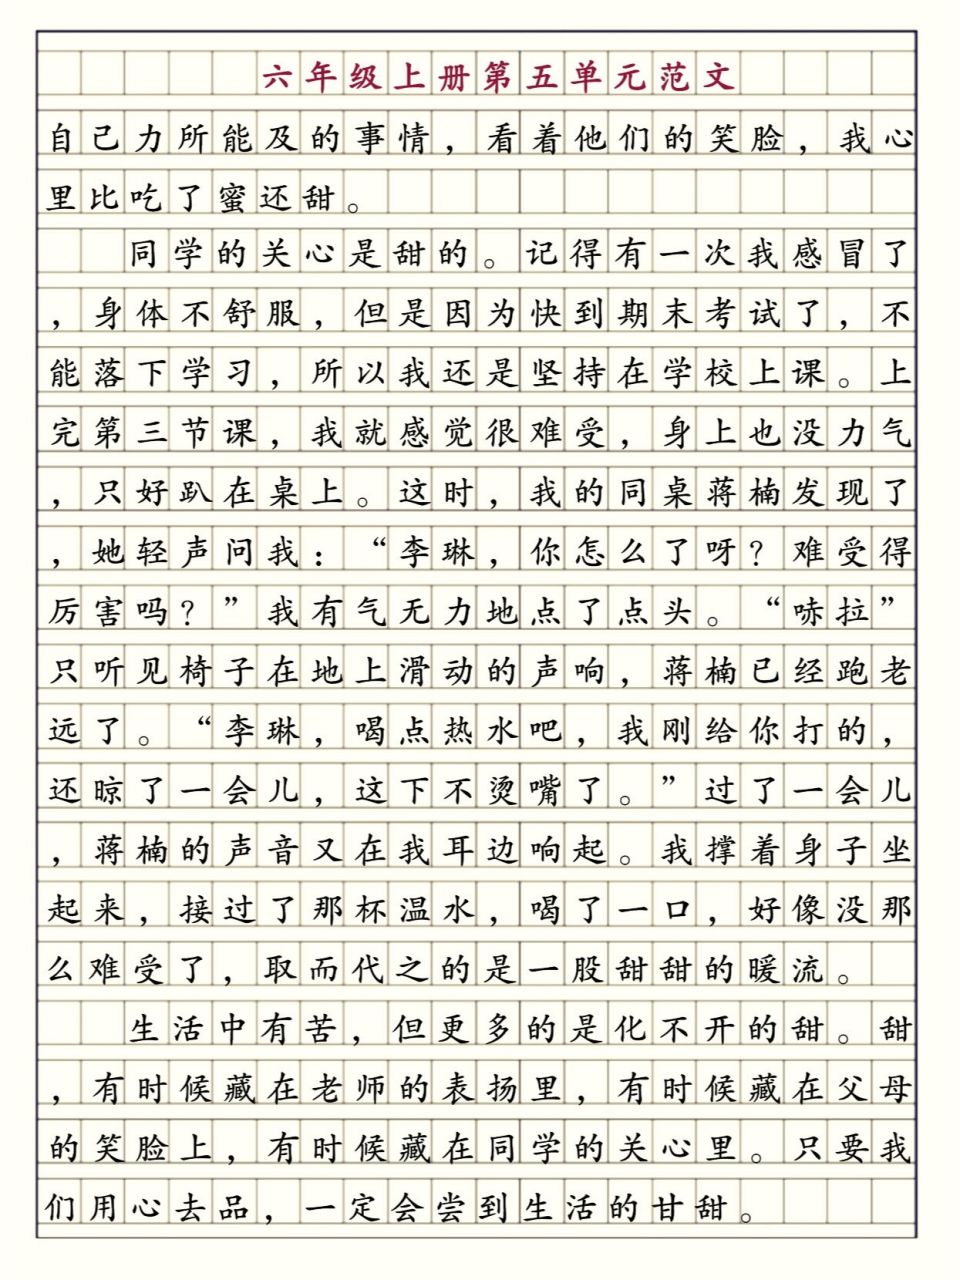 六年级上册第五单元范文
自己力所能及的事情，看着他们的笑脸，我心
里比吃了蜜还甜。
同学的关心是甜的。记得有一次我感冒了
，身体不舒服，但是因为快到期末考试了，不
能落下学习，所以我还是坚持在学校上课。上
完第三节课，我就感觉很难受，身上也没力气
，只好趴在桌上。这时，我的同桌蒋楠发现了
，她轻声问我：“李琳，你怎么了呀？难受得
厉害吗？”我有气无力地点了点头。“哧拉”
只听见椅子在地上滑动的声响，蒋楠已经跑老
远了。“李琳，喝点热水吧，我刚给你打的，
还晾了一会儿，这下不烫嘴了。”过了一会儿
，蒋楠的声音又在我耳边响起。我撑着身子坐
起来，接过了那杯温水，喝了一口，好像没那
么难受了，取而代之的是一股甜甜的暖流。
生活中有苦，但更多的是化不开的甜。甜
，有时候藏在老师的表扬里，有时候藏在父母
的笑脸上，有时候藏在同学的关心里。只要我
们用心去品，一定会尝到生活的甘甜。